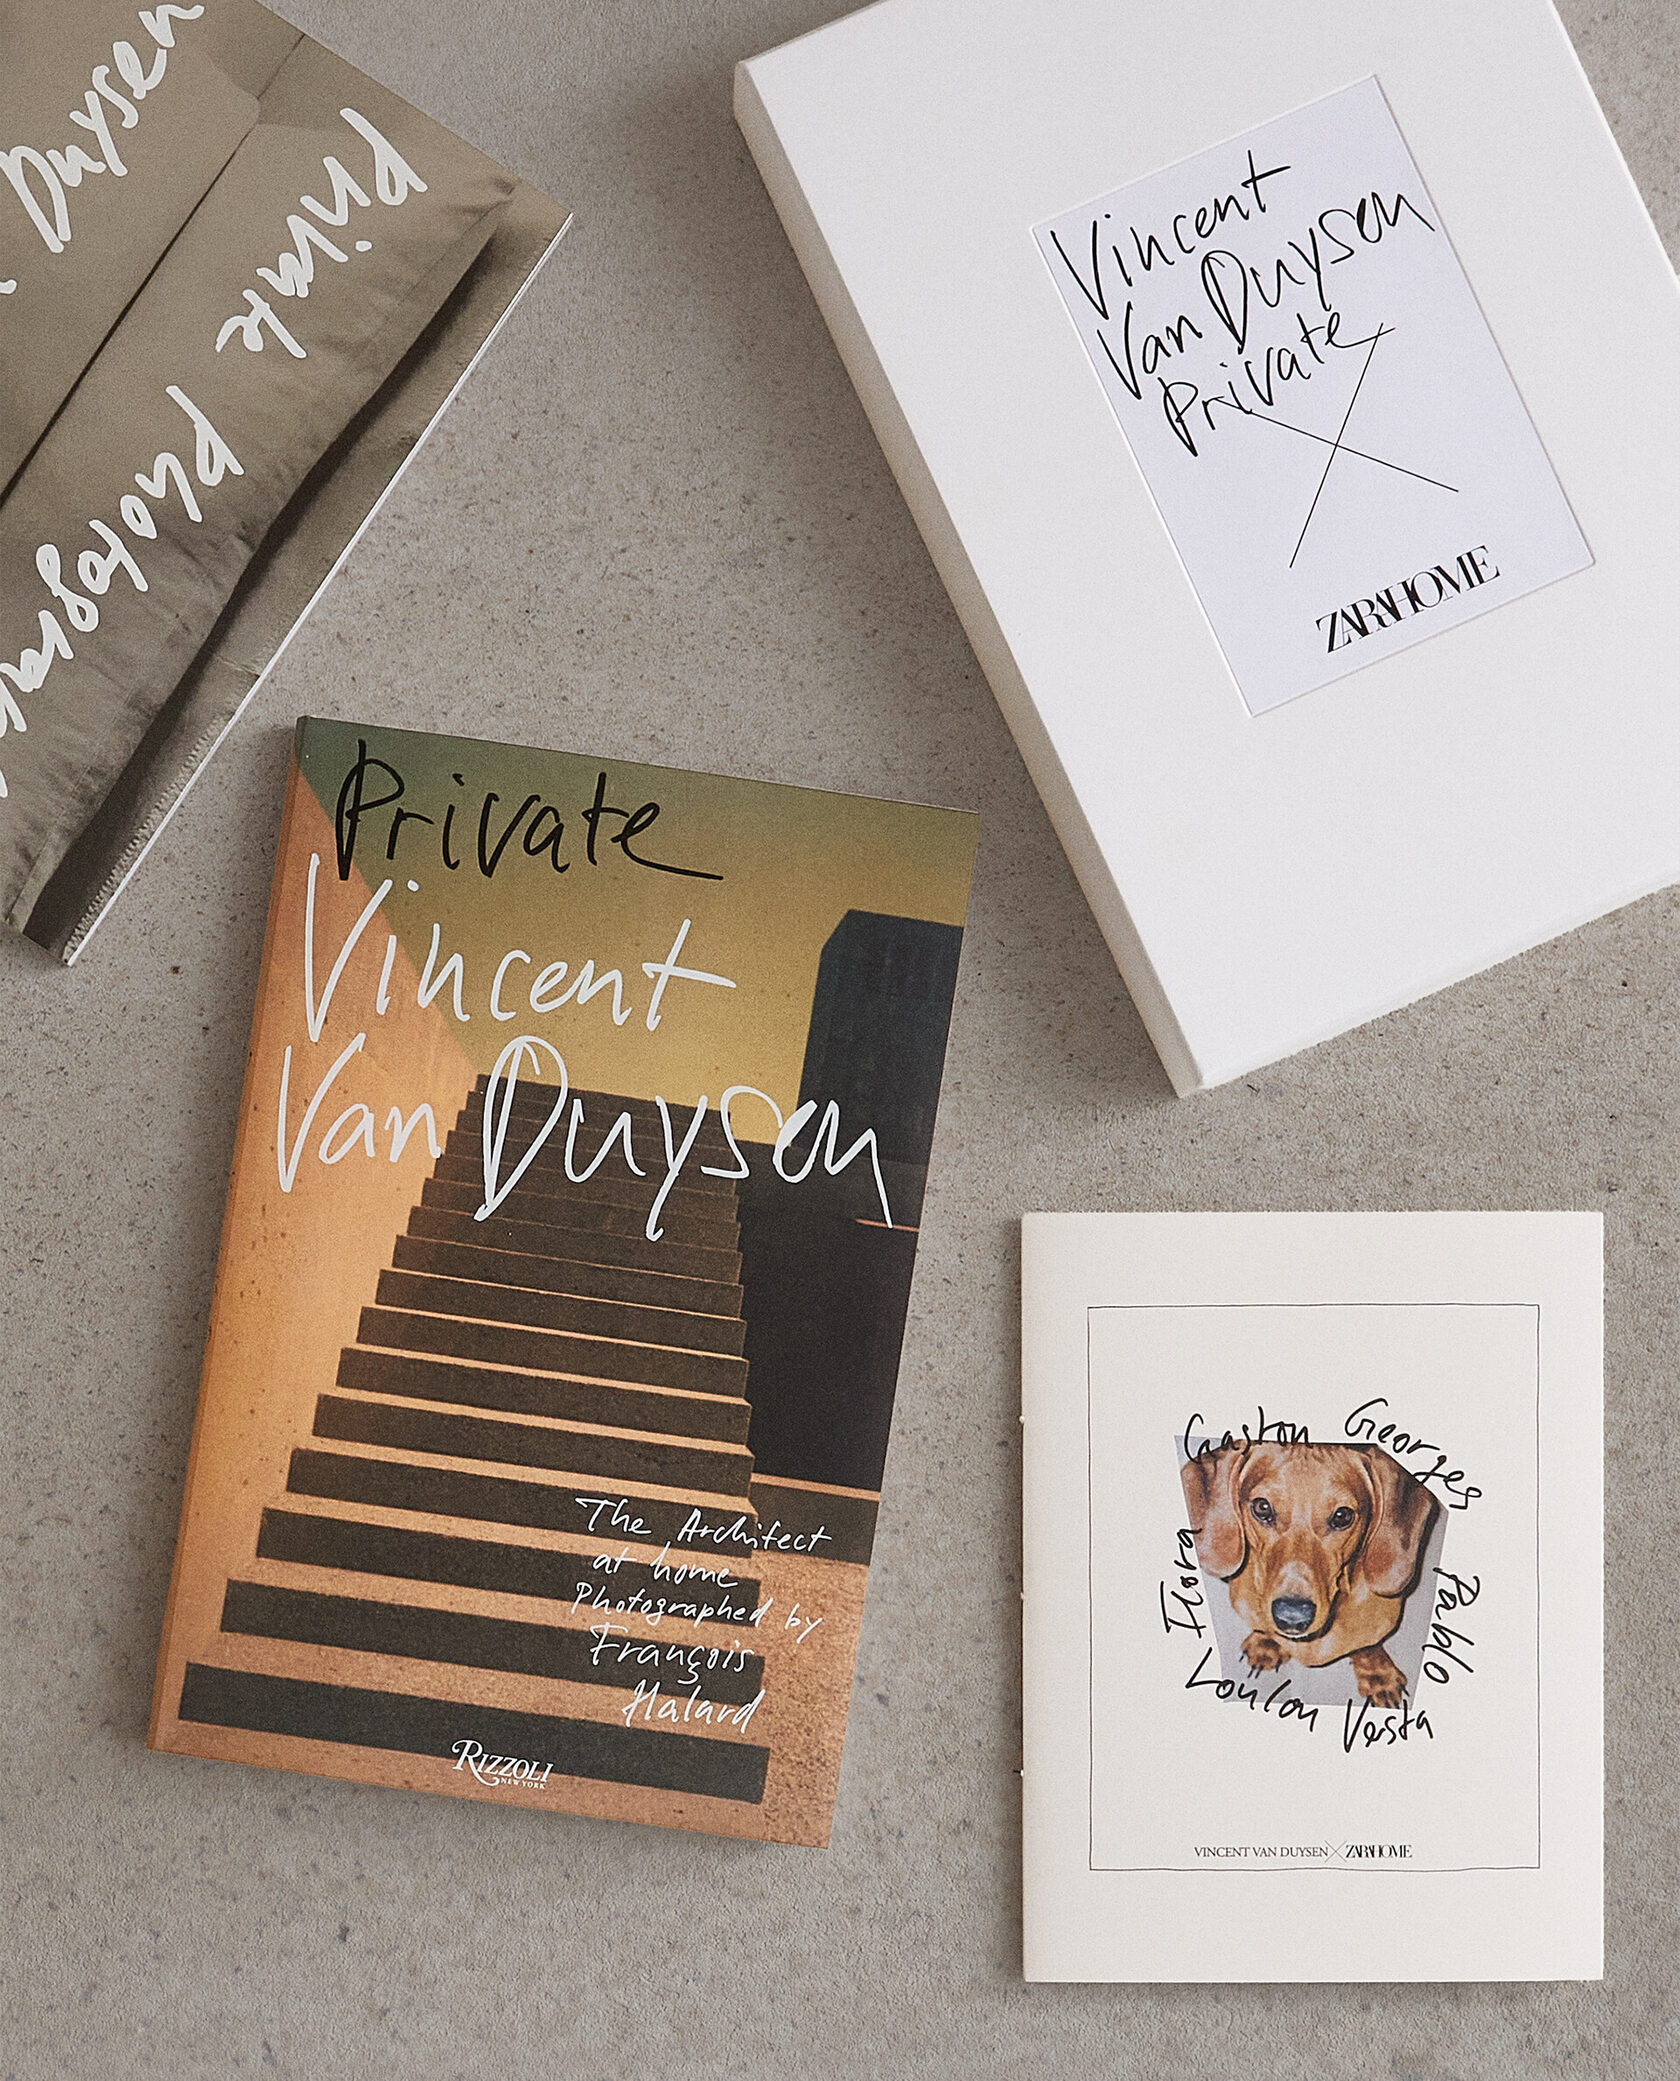 Duysen
Private
Photographed
Vincent
Van Duysen
Private
ZARAHOME
Private
Vincent
Van Duysen
The Architect
at home
Photographed by
François
Halard
RIZZOLI
NEW YORK
Gaston Georges
Flora
Pablo
Loulou Vesta
VINCENT VAN DUYSEN X ZARAHOME